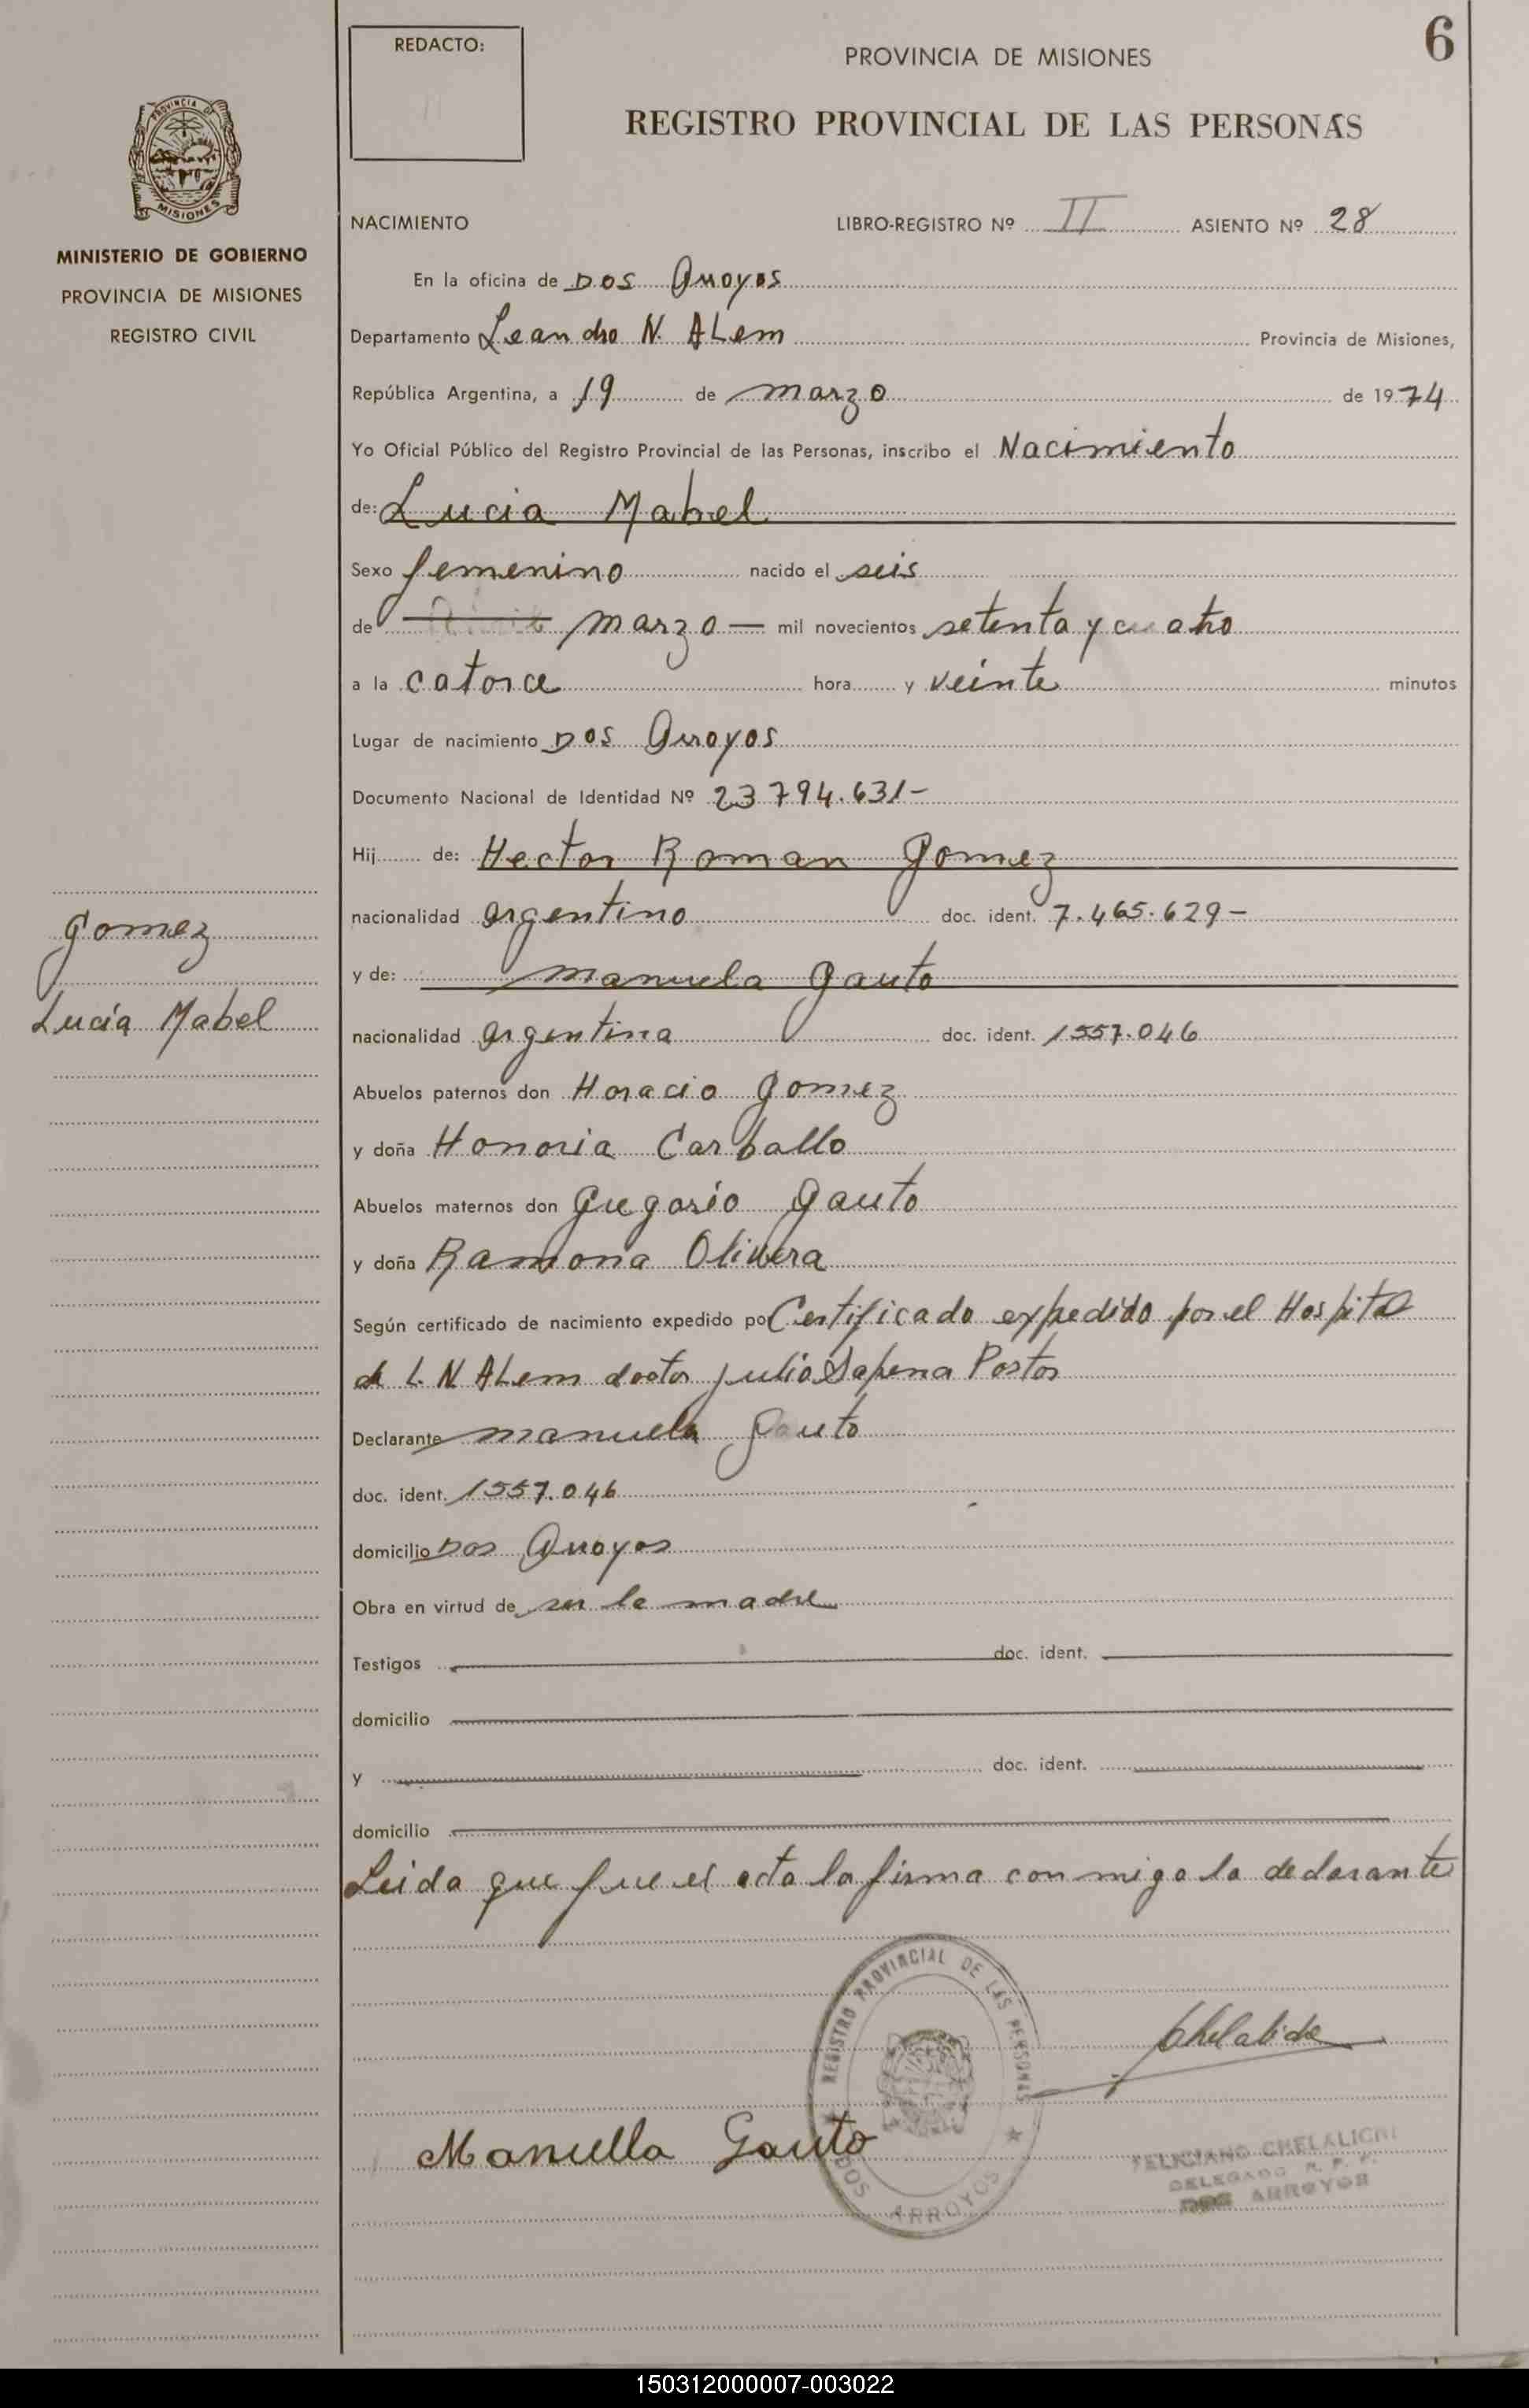 6
REDACTO:
PROVINCIA DE MISIONES
REGISTRO PROVINCIAL DE LAS PERSONAS
PROVINCIA DE
MISIONES
MINISTERIO DE GOBIERNO
PROVINCIA DE MISIONES
REGISTRO CIVIL
NACIMIENTO LIBRO-REGISTRO Nº II ASIENTO Nº 28
En la oficina de Dos Arroyos
Departamento Leandro N. ALem Provincia de Misiones,
República Argentina, a 19 de marzo de 1974
Yo Oficial Público del Registro Provincial de las Personas, inscribo el Nacimiento
de: Lucia Mabel
Sexo femenino nacido el seis
de marzo — mil novecientos setenta y cuatro
a la catorce hora y veinte minutos
Lugar de nacimiento Dos Arroyos
Documento Nacional de Identidad Nº 23794.631-
Hij de: Hector Roman Gomez
nacionalidad argentino doc. ident. 7.465.629-
y de: manuela Gauto
nacionalidad argentina doc. ident. 1557.046
Abuelos paternos don Horacio Gomez
y doña Honoria Carballo
Abuelos maternos don Gregorio Gauto
y doña Ramona Olivera
Según certificado de nacimiento expedido por Certificado expedido por el Hospital
de L. N ALem doctor julio Sapena Pastor
Declarante manuela Gauto
doc. ident. 1557.046
domicilio Dos Arroyos
Obra en virtud de ser la madre
Testigos doc. ident.
domicilio
y doc. ident.
domicilio
Leida que fue el acta la firma con migo la declarante
Gomez
Lucía Mabel
REGISTRO PROVINCIAL DE LAS PERSONAS
DOS ARROYOS
Manuella Gauto
FELICIANO
DELEGADO R. P. P.
DOS ARROYOS
150312000007-003022